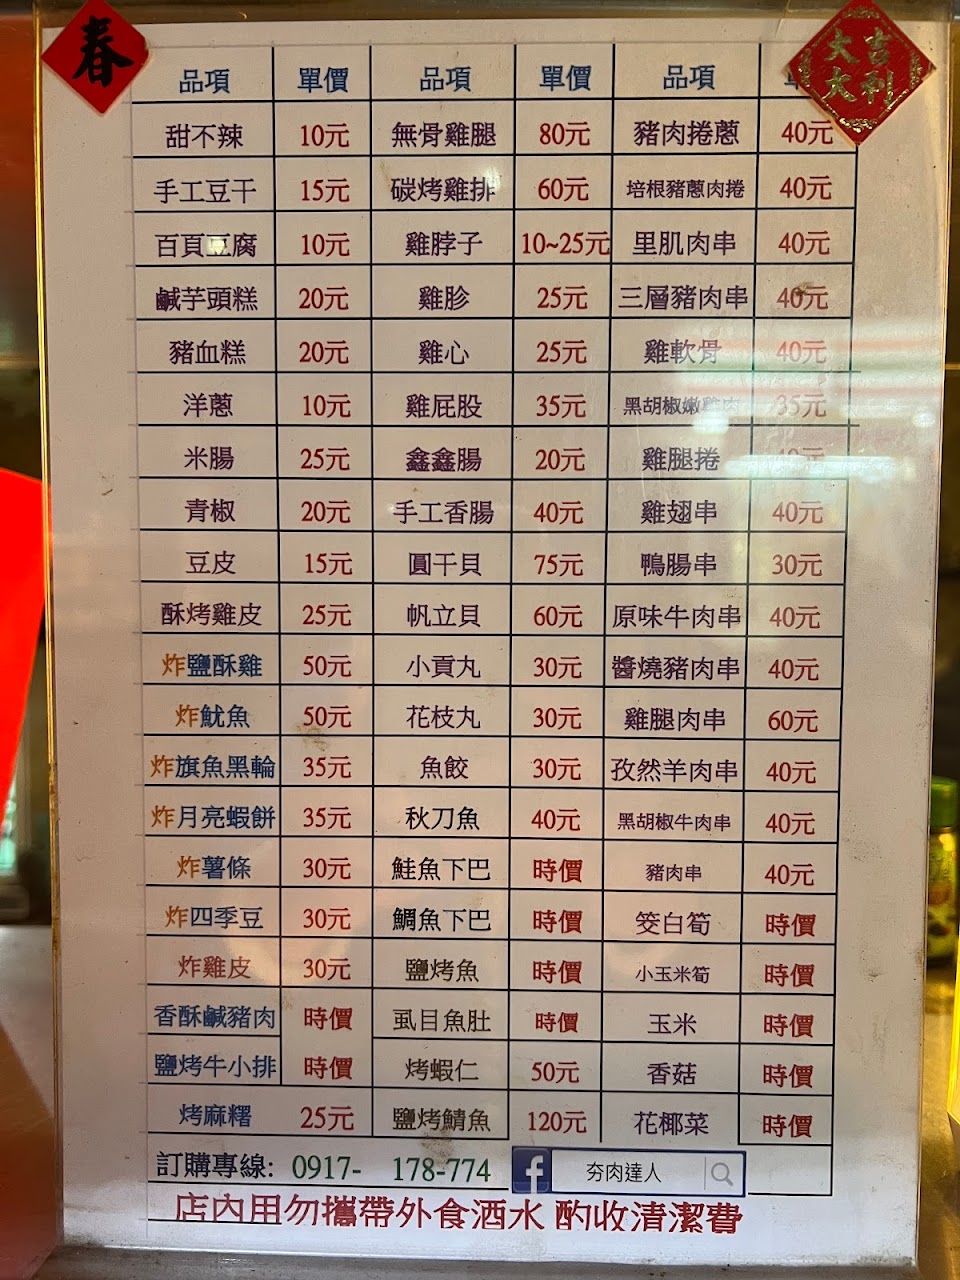 春
大吉
大利
品項 單價 品項 單價 品項
甜不辣 10元 無骨雞腿 80元 豬肉捲蔥 40元
手工豆干 15元 碳烤雞排 60元 培根豬蔥肉捲 40元
百頁豆腐 10元 雞脖子 10~25元 里肌肉串 40元
鹹芋頭糕 20元 雞胗 25元 三層豬肉串 40元
豬血糕 20元 雞心 25元 雞軟骨 40元
洋蔥 10元 雞屁股 35元 黑胡椒嫩雞肉 35元
米腸 25元 鑫鑫腸 20元 雞腿捲 40元
青椒 20元 手工香腸 40元 雞翅串 40元
豆皮 15元 圓干貝 75元 鴨腸串 30元
酥烤雞皮 25元 帆立貝 60元 原味牛肉串 40元
炸鹽酥雞 50元 小貢丸 30元 醬燒豬肉串 40元
炸魷魚 50元 花枝丸 30元 雞腿肉串 60元
炸旗魚黑輪 35元 魚餃 30元 孜然羊肉串 40元
炸月亮蝦餅 35元 秋刀魚 40元 黑胡椒牛肉串 40元
炸薯條 30元 鮭魚下巴 時價 豬肉串 40元
炸四季豆 30元 鯛魚下巴 時價 筊白筍 時價
炸雞皮 30元 鹽烤魚 時價 小玉米筍 時價
香酥鹹豬肉 時價 虱目魚肚 時價 玉米 時價
鹽烤牛小排 時價 烤蝦仁 50元 香菇 時價
烤麻糬 25元 鹽烤鯖魚 120元 花椰菜 時價
訂購專線: 0917- 178-774 f 夯肉達人
店內用勿攜帶外食酒水 酌收清潔費